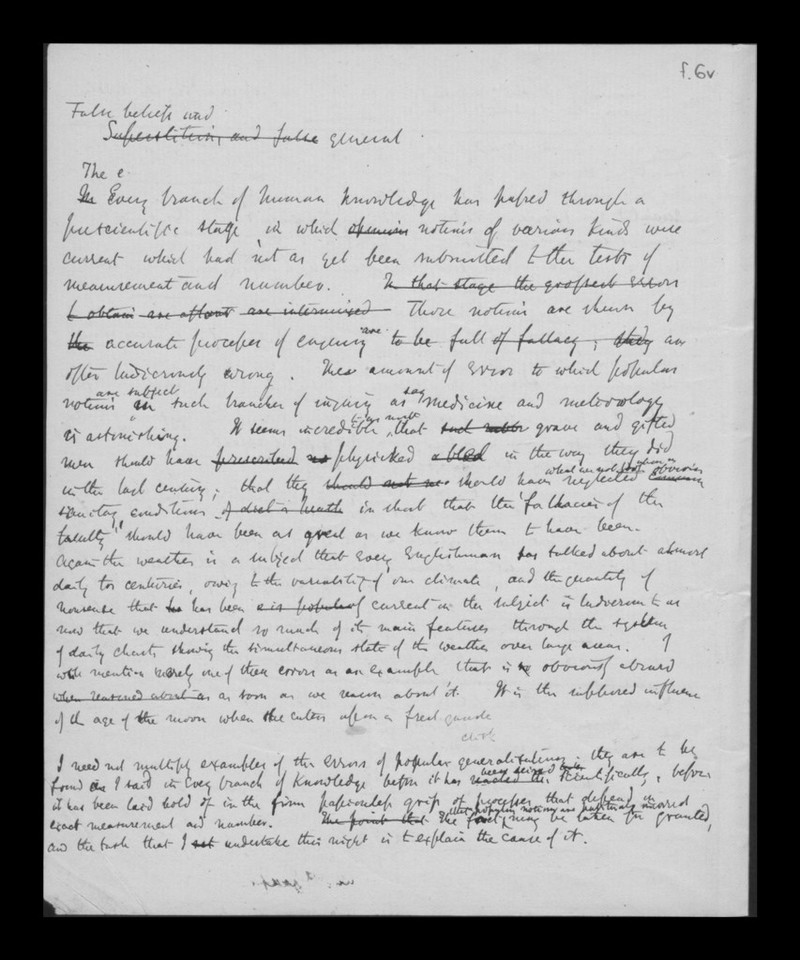 f. 6v
False beliefs and
Superstitions and false general
The e
In Every branch of human knowledge has passed through a
prescientific stage in which opinions notions of various kinds were
current which had not as yet been submitted to the tests of
measurement and number. In that stage the grossest errors
are intermixed Those notions are shewn by
the accurate processes of enquiry are to be full of fallacy, they are
often ludicrously wrong. The amount of error to which popular
notions are subject in such branches of inquiry as say medicine and meteorology
is astonishing. It seems incredible to us that such grave and gifted
men should have prescribed physicked & bled in the way they did
in the last century; that they should not should have neglected what we now obvious common
sanitary conditions, in short that the "fallacies of the
faculty" should have been as great as we know them to have been.
Again the weather is a subject that every Englishman has talked about almost
daily for centuries, owing to the variability of our climate, and the quantity of
nonsense that has been current in the subject is ludicrous to us
now that we understand so much of its main features through the system
of daily charts shewing the simultaneous state of the weather over large areas. I
will mention merely one of these errors as an example that is obviously absurd
when reasoned about as as soon as we reason about it. It is the supposed influence
of the age of the moon when she enters upon a fresh quarter
I need not multiply examples of the errors of popular generalisations; they are to be
found as I said in every branch of knowledge before it has been seized scientifically, before
it has been laid hold of in the firm passionless grip of processes that depend on
exact measurement and number. The point that the fact that popular notions are may be taken for granted,
and the task that I set undertake this night is to explain the cause of it.